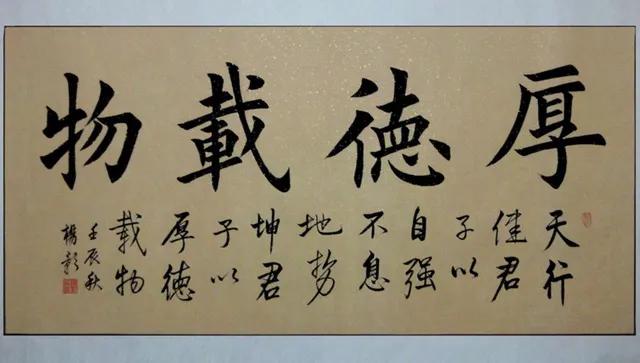 厚德載物
天行
健君
子以
自强
不息
地势
坤君
子以
厚德
载物
壬辰秋
楊